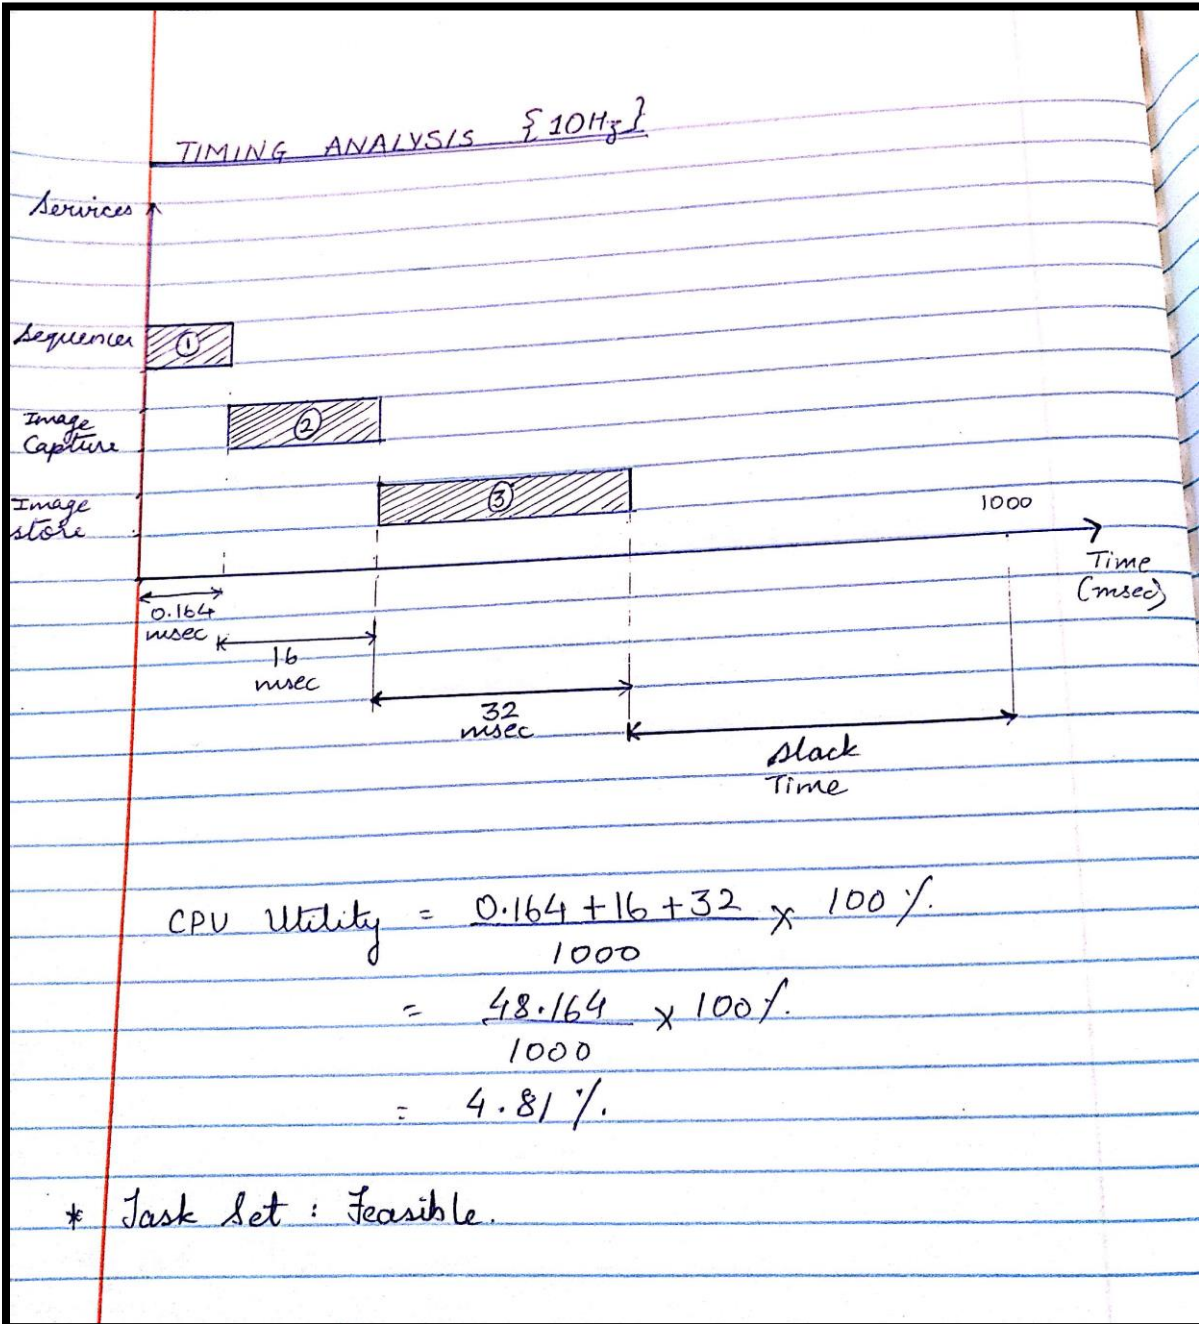 TIMING ANALYSIS {10Hz}
Services
Sequencer
①
Image
Capture
②
Image
store
③
1000
Time
(msec)
0.164
msec
16
msec
32
msec
Slack
Time
CPU Utility = 0.164 + 16 + 32 × 100 %.
1000
= 48.164 × 100%.
1000
= 4.81 %.
* Task Set : Feasible.